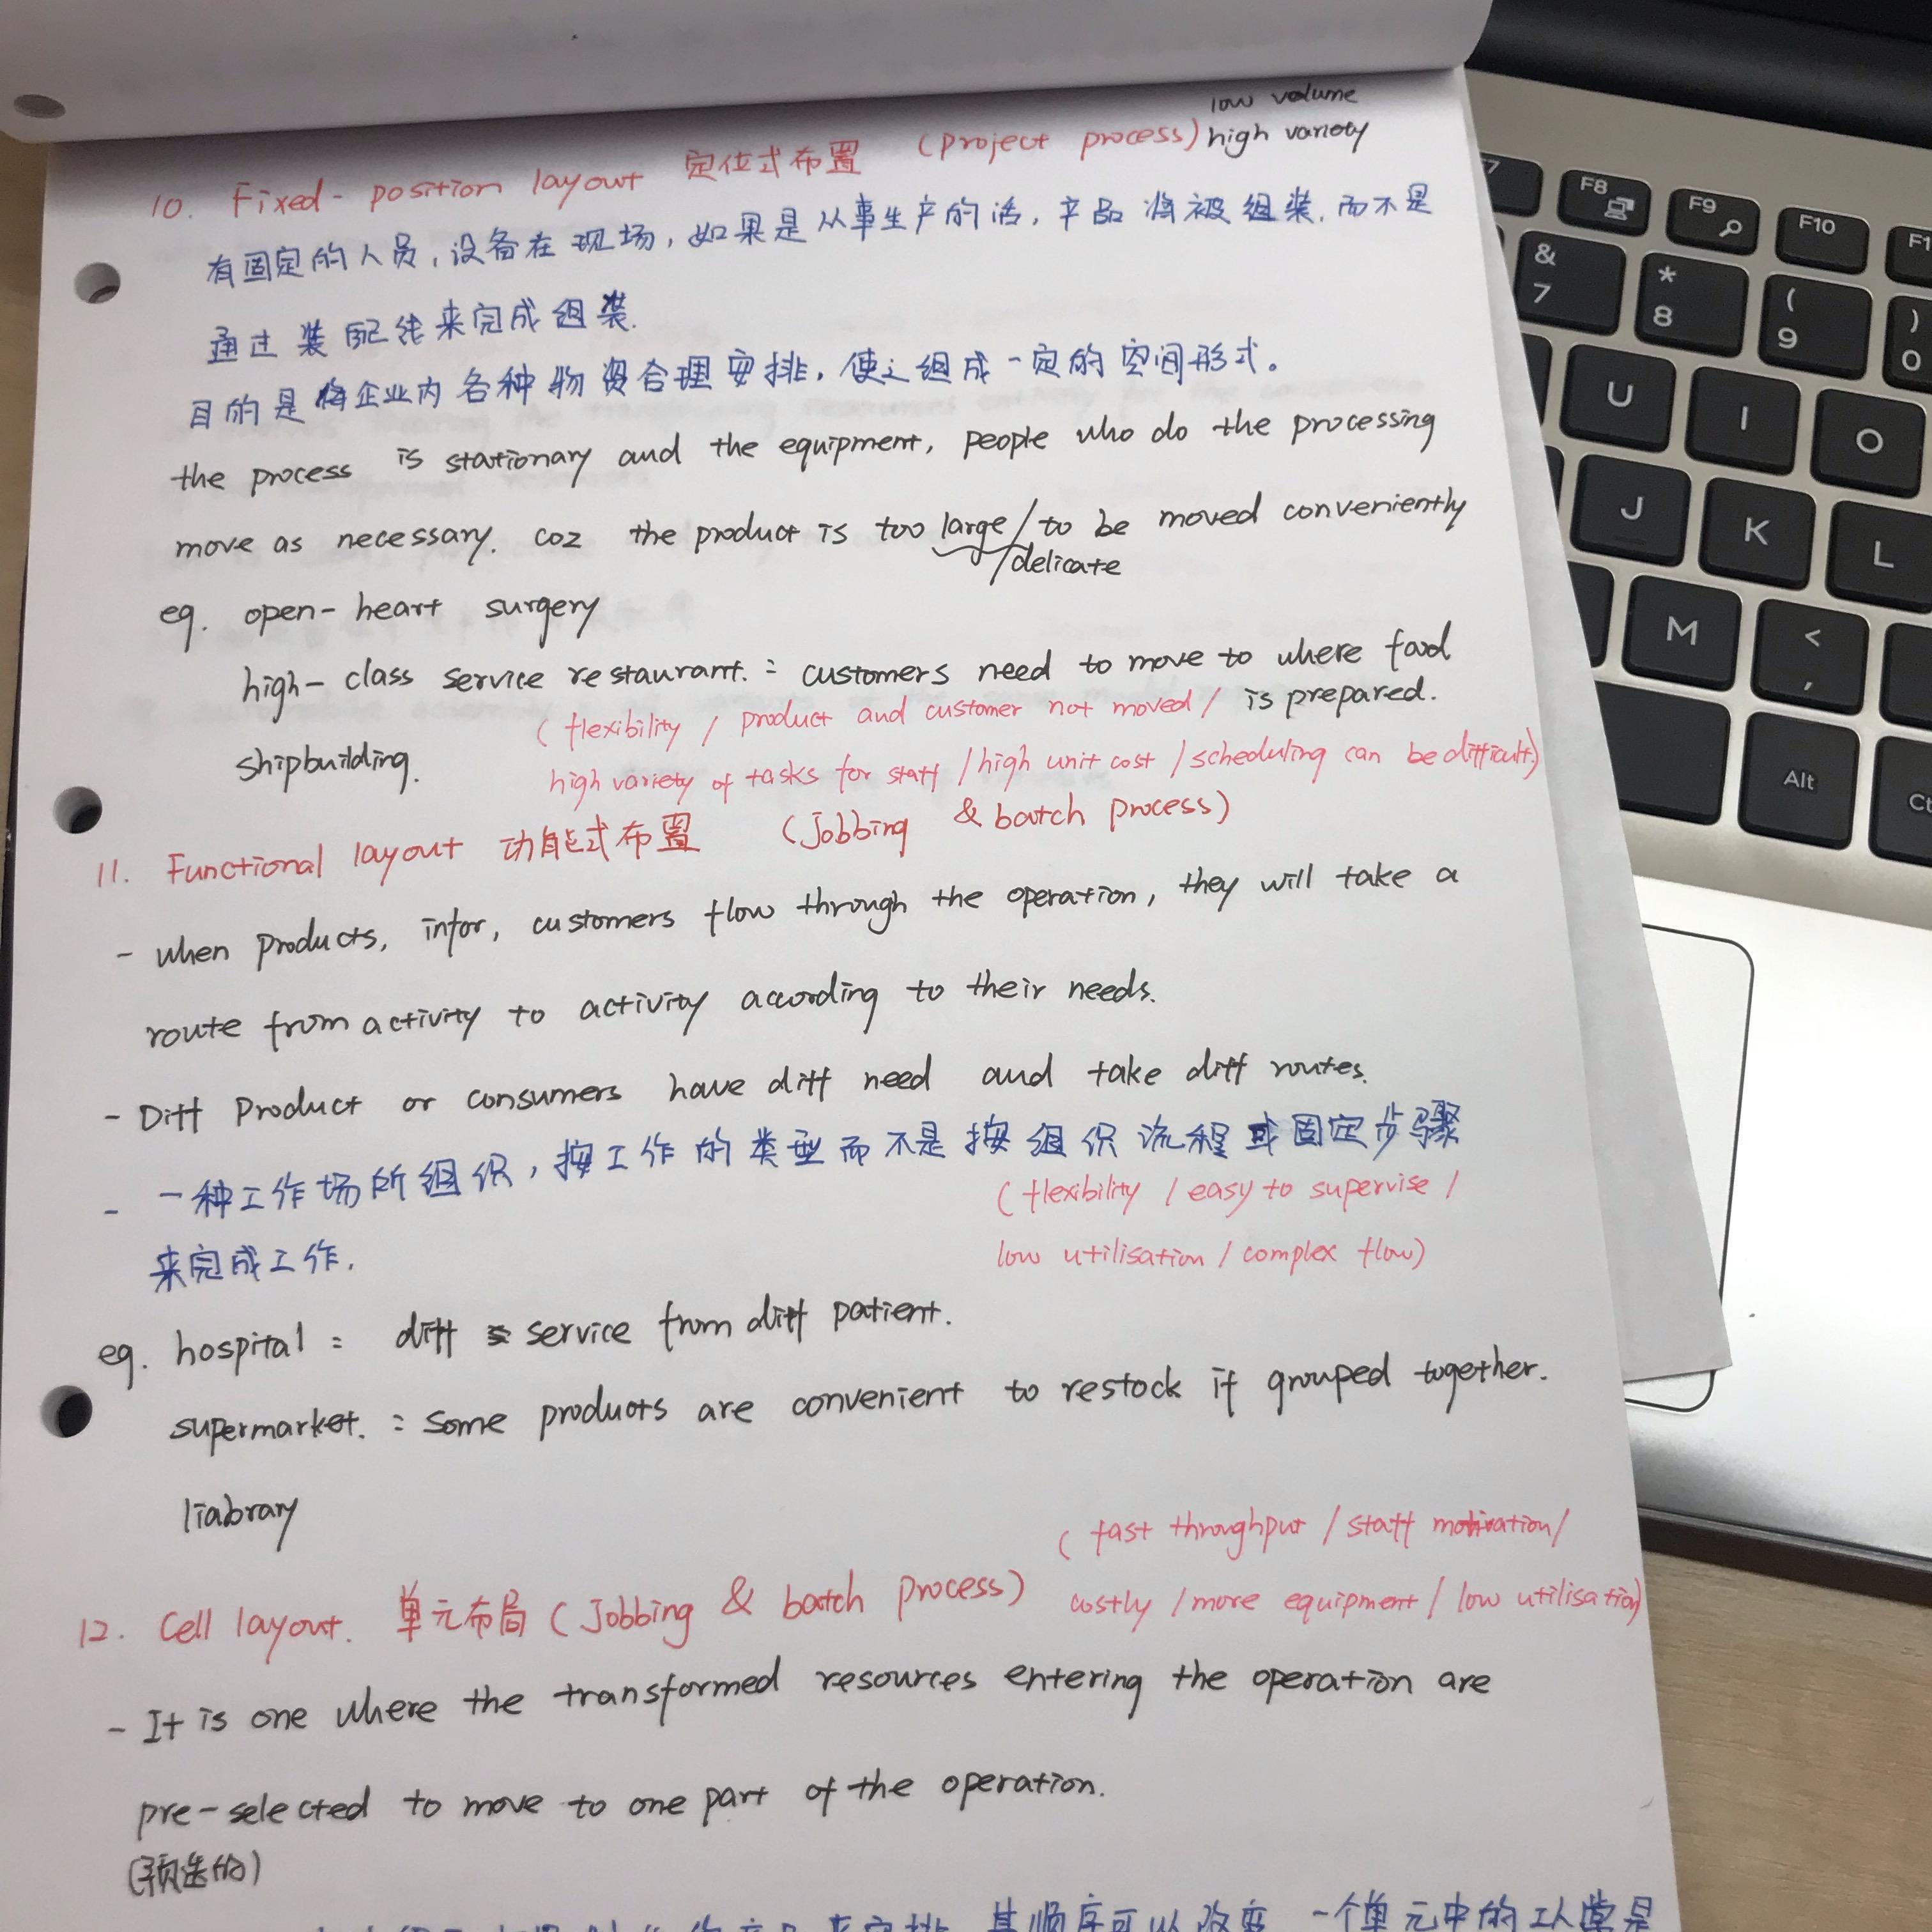 low volume
10. Fixed-position layout 定位式布置 (project process) high variety
有固定的人员,设备在现场,如果是从事生产的话,产品将被组装,而不是
通过装配线来完成组装.
目的是将企业内各种物资合理安排,使之组成一定的空间形式。
the process is stationary and the equipment, people who do the processing
move as necessary. coz the product is too large / to be moved conveniently
/delicate
eg. open-heart surgery
high-class service restaurant. = customers need to move to where food
is prepared.
(flexibility / product and customer not moved /
shipbuilding.
high variety of tasks for staff / high unit cost / scheduling can be difficult)
11. Functional layout 功能式布置 (Jobbing & batch process)
- when products, infor, customers flow through the operation, they will take a
route from activity to activity acwording to their needs.
- Diff product or consumers have diff need and take diff routes.
- 一种工作场所组织,按工作的类型而不是按组织流程或固定步骤
来完成工作.
(flexibility / easy to supervise /
low utilisation / complex flow)
eg. hospital = diff service from diff patient.
supermarket. = some products are convenient to restock if grouped together.
liabrary
(fast throughput / staff motivation /
12. Cell layout. 单元布局 (Jobbing & batch process)
costly / more equipment / low utilisation)
- It is one where the transformed resources entering the operation are
pre-selected to move to one part of the operation.
(预选的)
其顺序可以改变 一个单元中的工人常是
F7 F8 F9 F10 F1
& 7 * 8 ( 9 ) 0
U I O
J K L
M < ,
Alt Ct